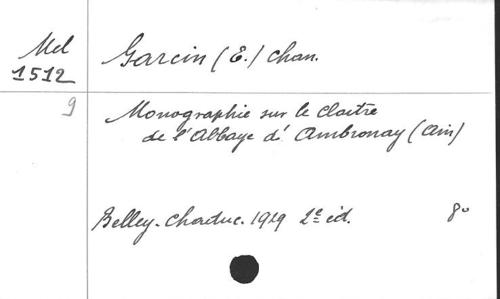 Mel
1512
Garcin (E.) chan.
9
Monographie sur le cloître
de l'Abbaye d'Ambronay (Ain)
Belley. Chaduc. 1919 2e éd. 8o